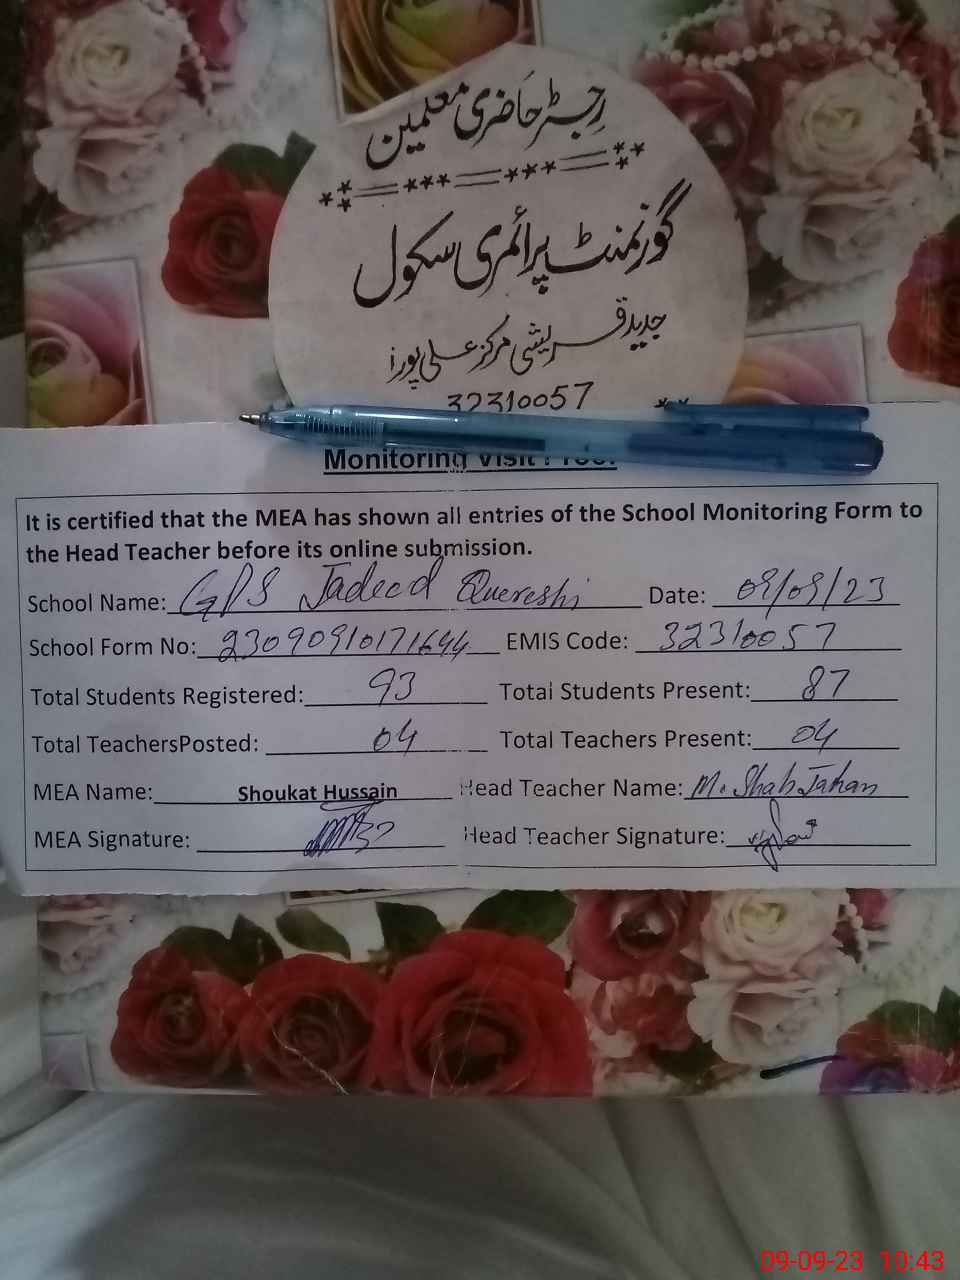 رجسٹر حاضری معلمین
گورنمنٹ پرائمری سکول
جدید قریشی مرکز علی پور i
32310057
Monitoring Visit Proof
It is certified that the MEA has shown all entries of the School Monitoring Form to
the Head Teacher before its online submission.
School Name: GPS Jadeed Quereshi Date: 09/09/23
School Form No: 23090910171644 EMIS Code: 32310057
Total Students Registered: 93 Total Students Present: 87
Total TeachersPosted: 04 Total Teachers Present: 04
MEA Name: Shoukat Hussain Head Teacher Name: M. Shah Jahan
MEA Signature: Head Teacher Signature:
09-09-23 10:43